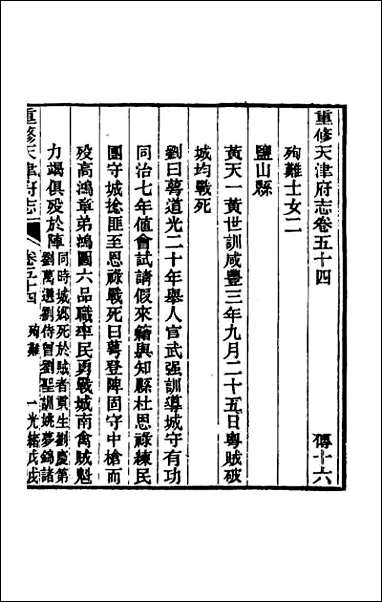 重修天津府志卷五十四　傳十六
殉難士女二
鹽山縣
黃天一黃世訓咸豐三年九月二十五日粵賊破
城均戰死
劉曰萼道光二十年舉人官武强訓導城守有功
同治七年值會試請假來籍與知縣杜恩祿練民
團守城捻匪至恩祿戰死曰萼登陴固守中槍而
歿高鴻章弟鴻圖六品職率民勇戰城南禽賊魁
力竭俱歿於陣
同時城鄉死於賊者貢生劉慶第
劉萬選劉侍曾劉聖訓姚夢錦諸
重修天津府志
卷五十四　殉難　一　光緒戊戌